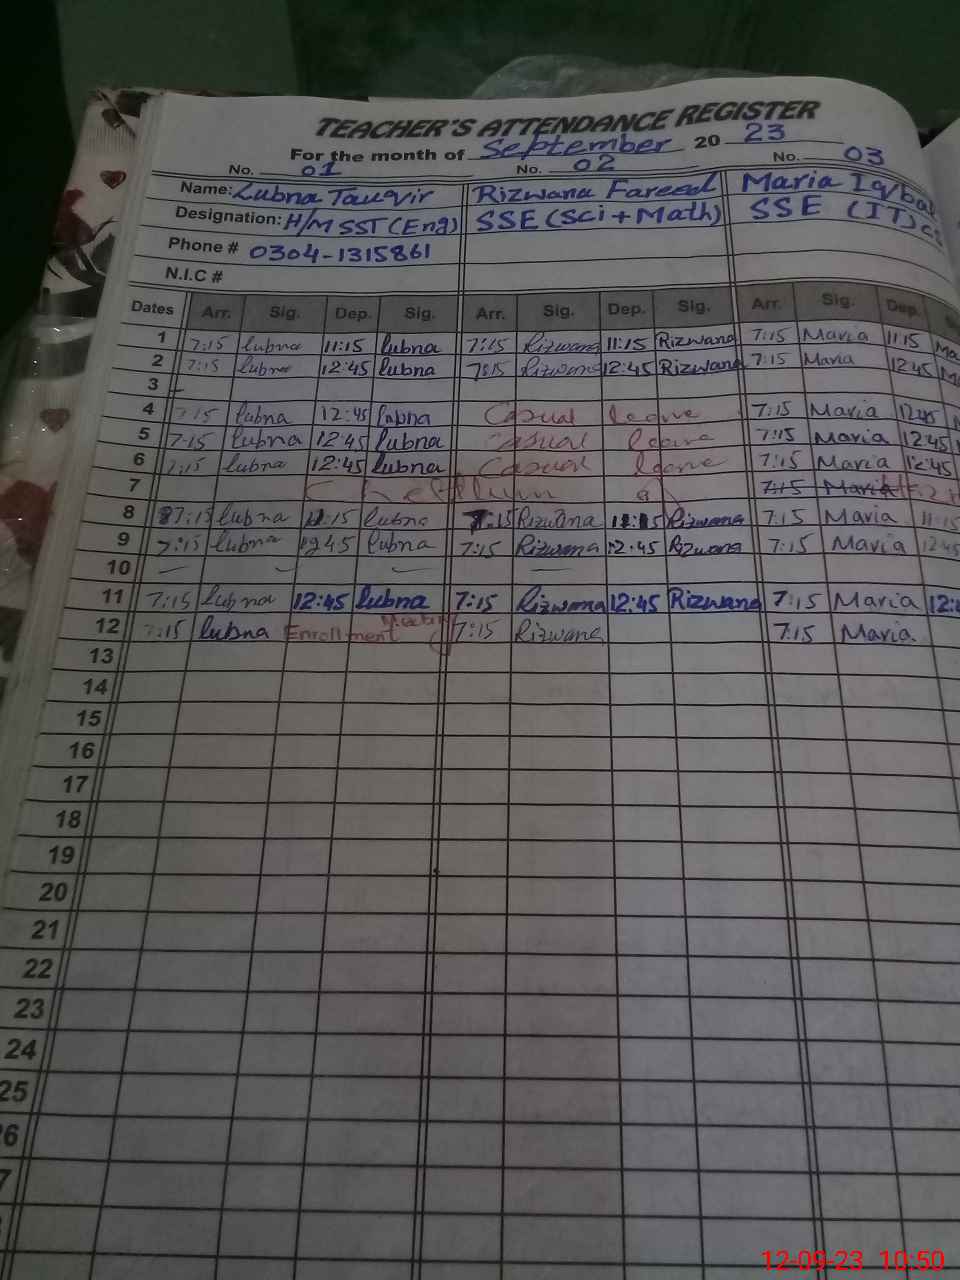 TEACHER'S ATTENDANCE REGISTER
For the month of September 20 23
No. 01 No. 02 No. 03
Name: Lubna Tauqir Rizwana Fareed Maria Iqbal
Designation: H/M SST (Eng) SSE (Sci + Math) SSE (IT)
Phone # 0304-1315861
N.I.C #
Dates Arr. Sig. Dep. Sig. Arr. Sig. Dep. Sig. Arr. Sig. Dep.
1 7:15 Lubna 11:15 Lubna 7:15 Rizwana 11:15 Rizwana 7:15 Maria 11:15
2 7:15 Lubna 12:45 Lubna 7:15 Rizwana 12:45 Rizwana 7:15 Maria 12:45
3
4 7:15 Lubna 12:45 Lubna Casual leave 7:15 Maria 12:45
5 7:15 Lubna 12:45 Lubna Casual leave 7:15 Maria 12:45
6 7:15 Lubna 12:45 Lubna Casual leave 7:15 Maria 12:45
7 Chehllum 7:15 Maria
8 7:15 Lubna 11:15 Lubna 7:15 Rizwana 11:15 Rizwana 7:15 Maria 11:15
9 7:15 Lubna 12:45 Lubna 7:15 Rizwana 12:45 Rizwana 7:15 Maria 12:45
10
11 7:15 Lubna 12:45 Lubna 7:15 Rizwana 12:45 Rizwana 7:15 Maria
12 7:15 Lubna Enrollment Meeting 7:15 Rizwana 7:15 Maria
13
14
15
16
17
18
19
20
21
22
23
24
25
12-09-23 10:50